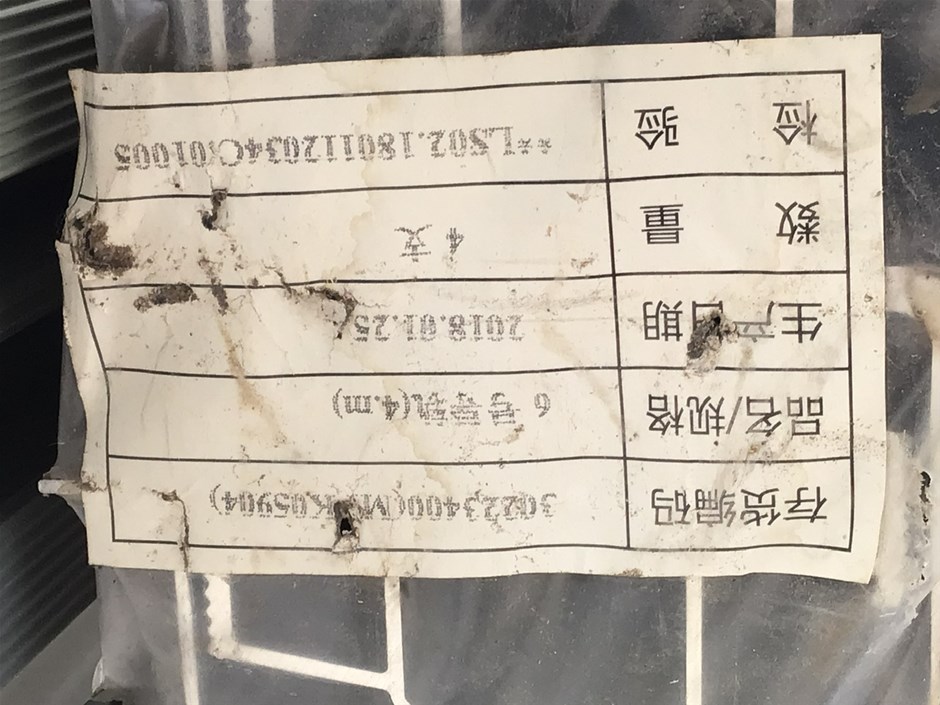 存货编码
品名/规格 6 号导轨(4.m)
生产日期 2018.01.25
数量 4 支
检验 **LS02.180112034C01005